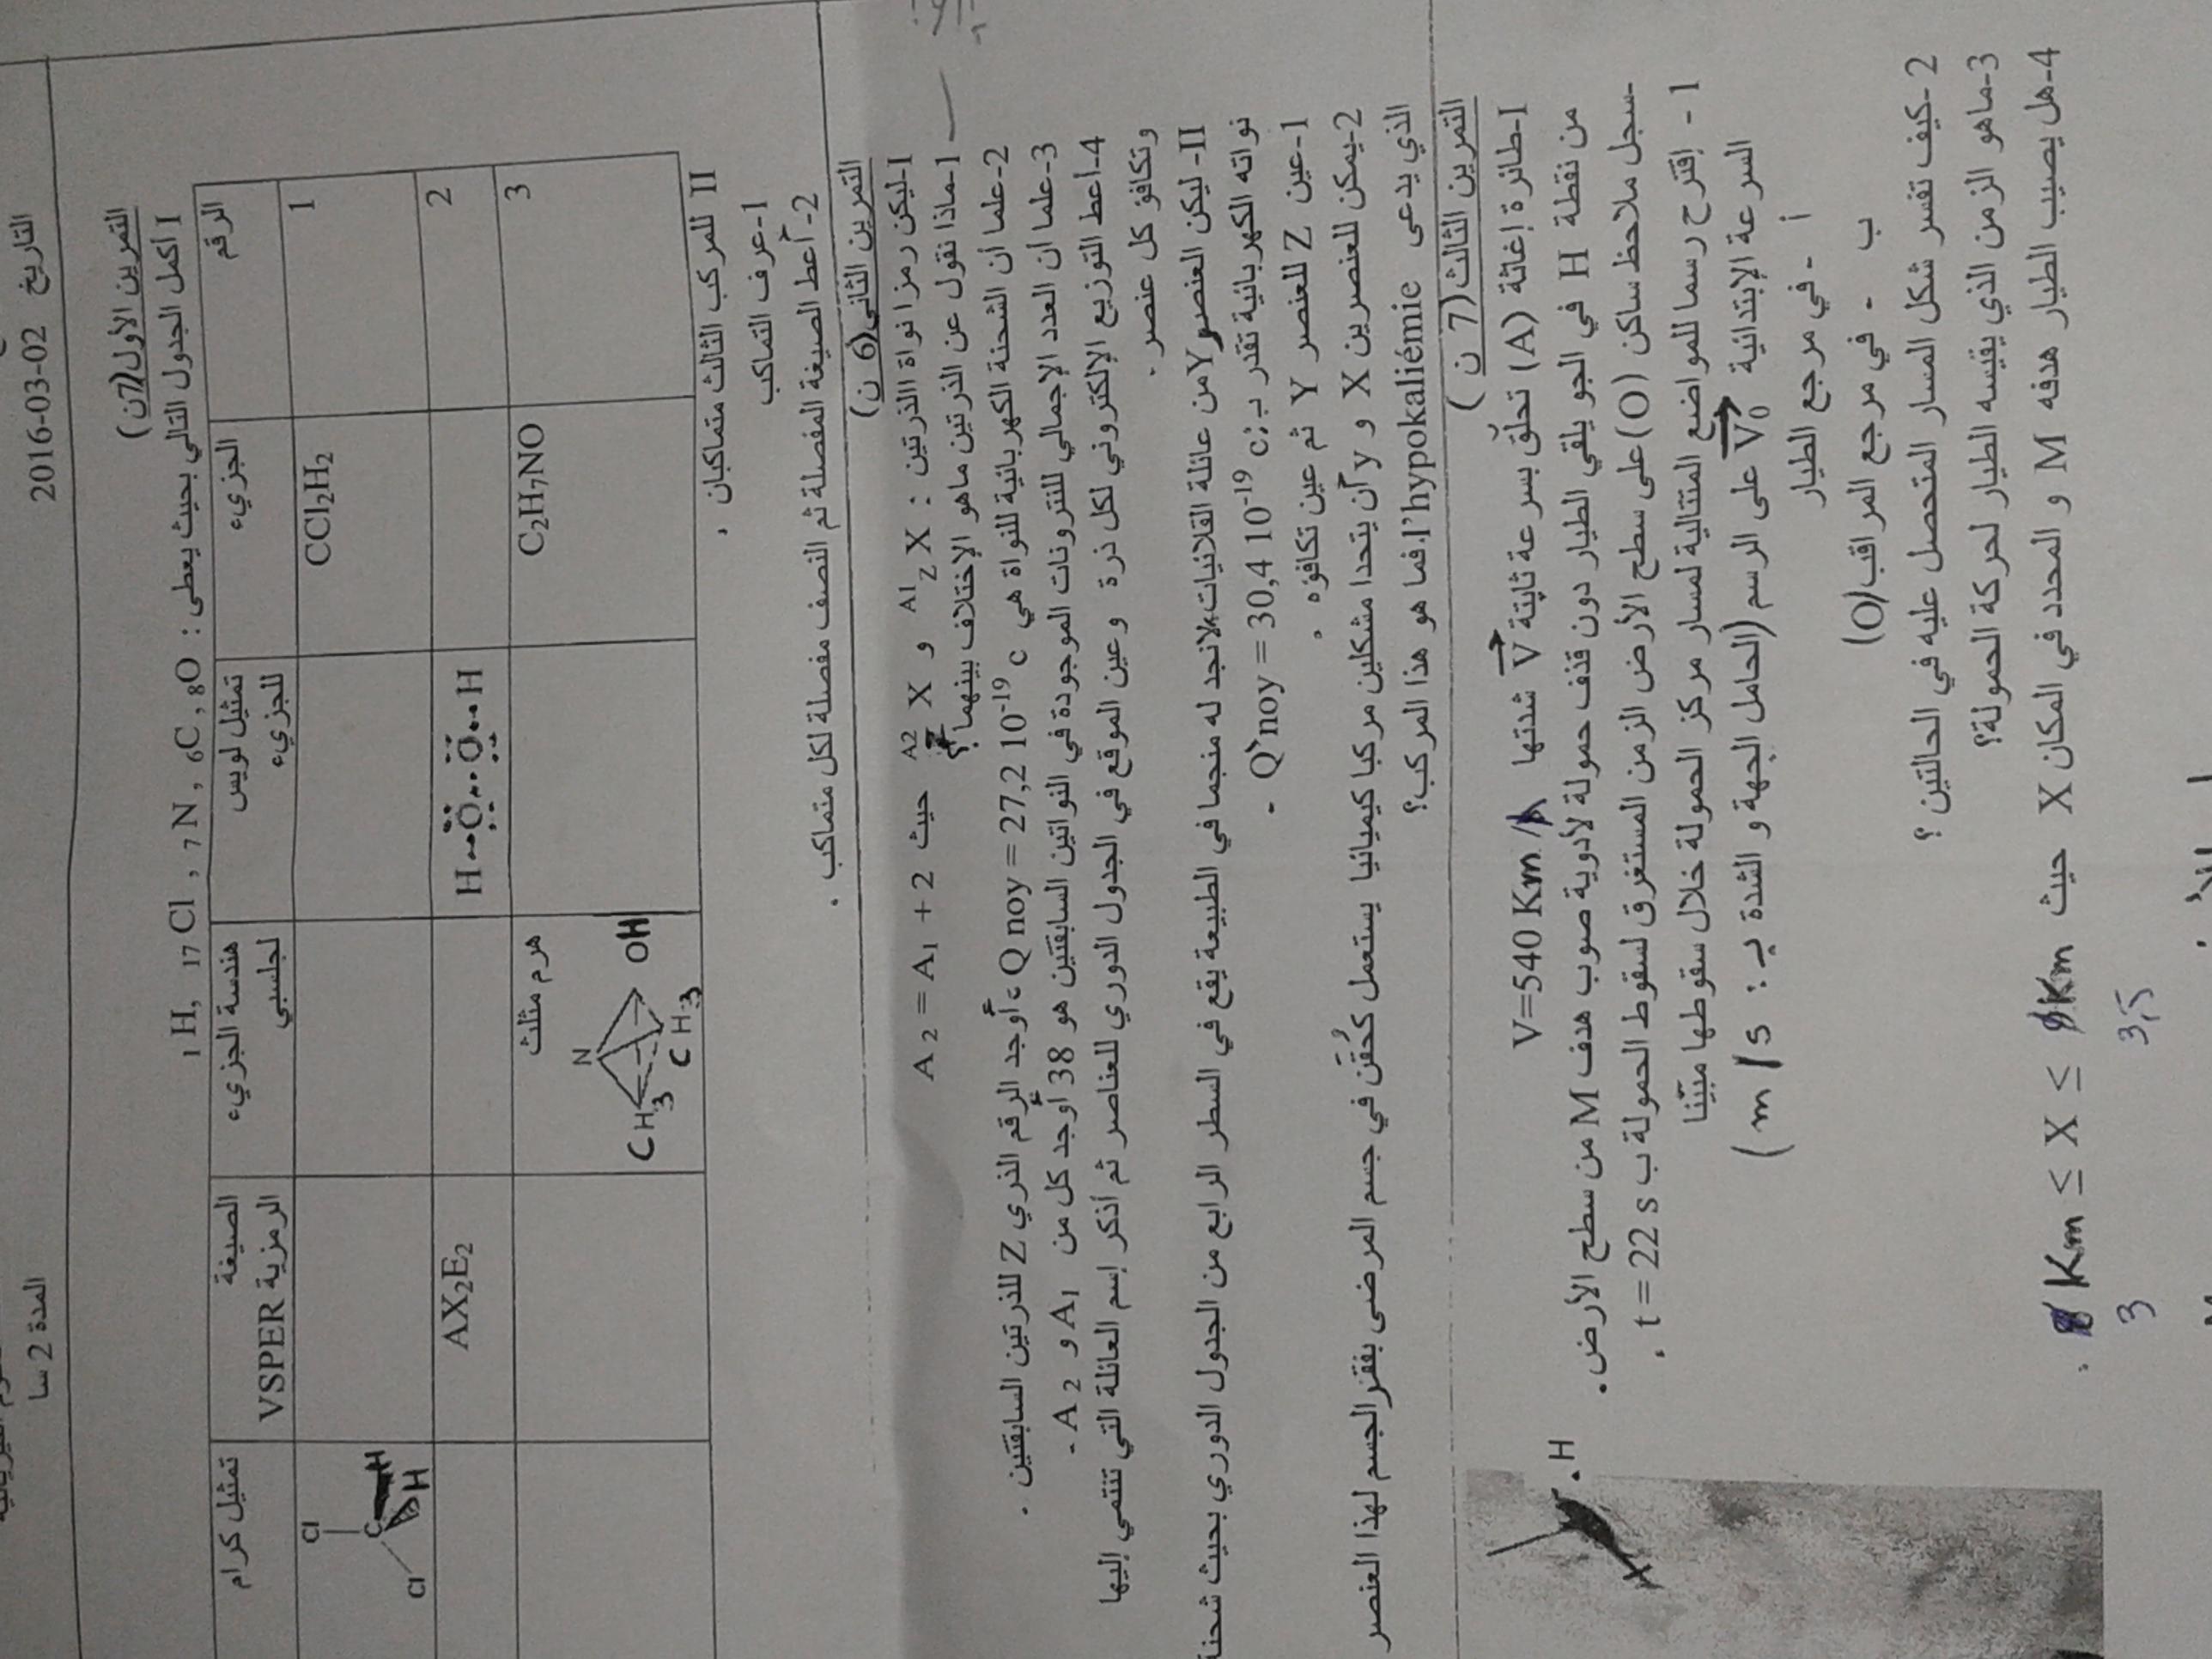 التاريخ 02-03-2016
المدة 2 سا
التمرين الأول(7ن)
I أكمل الجدول التالي بحيث يعطى : 1H, 17Cl , 7N , 6C , 8O
الرقم | الجزيء | تمثيل لويس للجزيء | هندسة الجزيء لجلسبي | الصيغة الرمزية VSPER | تمثيل كرام
1 | CCl2H2 | Cl Cl C H H
2 | H O O H | AX2E2
3 | C2H7NO | هرم مثلث N CH3 CH3 OH
II للمركب الثالث متماكبان .
1-عرف التماكب
2-أعط الصيغة المفصلة ثم النصف مفصلة لكل متماكب .
التمرين الثاني(6 ن)
I-ليكن رمزا نواة الذرتين : A1ZX و A2ZX حيث A2 = A1 + 2
1-ماذا نقول عن الذرتين ماهو الإختلاف بينهما؟
2-علما أن الشحنة الكهربائية للنواة هي Q noy = 27,2 10-19 c ،أوجد الرقم الذري Z للذرتين السابقتين .
3-علما أن العدد الإجمالي للنترونات الموجودة في النواتين السابقتين هو 38 أوجد كل من A1 و A2 .
4-أعط التوزيع الإلكتروني لكل ذرة وعين الموقع في الجدول الدوري للعناصر ثم أذكر إسم العائلة التي تنتمي إليها
وتكافؤ كل عنصر .
II- ليكن العنصر Y من عائلة القلائيات،لانجد له منجما في الطبيعة يقع في السطر الرابع من الجدول الدوري بحيث شحنة
نواته الكهربائية تقدر بـ: Q`noy = 30,4 10-19 c .
1-عين Z للعنصر Y ثم عين تكافؤه .
2-يمكن للعنصرين X و y أن يتحدا مشكلين مركبا كيميائيا يستعمل كحُقَن في جسم المرضى بفقر الجسم لهذا العنصر
الذي يدعى l'hypokaliémie.فما هو هذا المركب؟
التمرين الثالث(7 ن)
I-طائرة إغاثة (A) تحلّق بسرعة ثابتة V شدتها V=540 Km/h
من نقطة H في الجو يلقي الطيار دون قذف حمولة لأدوية صوب هدف M من سطح الأرض.
-سجل ملاحظ ساكن (O) على سطح الأرض الزمن المستغرق لسقوط الحمولة ب t = 22 s .
1 - إقترح رسما للمواضع المتتالية لمسار مركز الحمولة خلال سقوطها مبيّنا
السرعة الإبتدائية V0 على الرسم (الحامل الجهة و الشدة بـ : m/s)
أ - في مرجع الطيار
ب - في مرجع المراقب(O)
2-كيف تفسر شكل المسار المتحصل عليه في الحالتين ؟
3-ماهو الزمن الذي يقيسه الطيار لحركة الحمولة؟
4-هل يصيب الطيار هدفه M و المحدد في المكان X حيث Km ≤ X ≤ Km .
3 3,5
.H